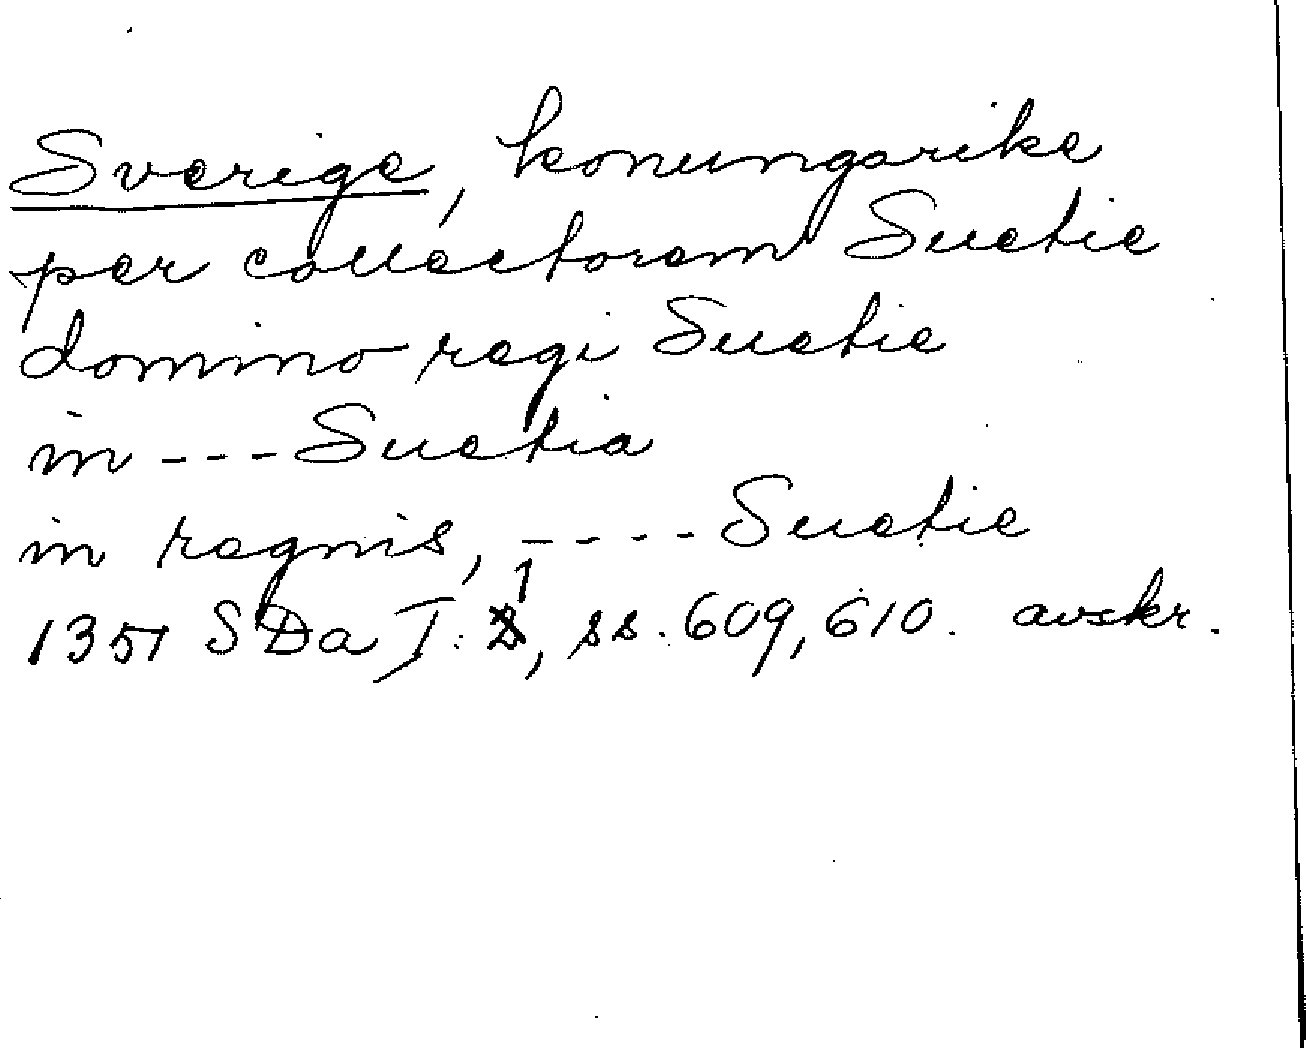 Sverige, konungarike
per collectorem Suetie
domino regi Suetie
in --- Suetia
in regnis, ---- Suetie
1351 SDa I:1, ss. 609, 610. avskr.